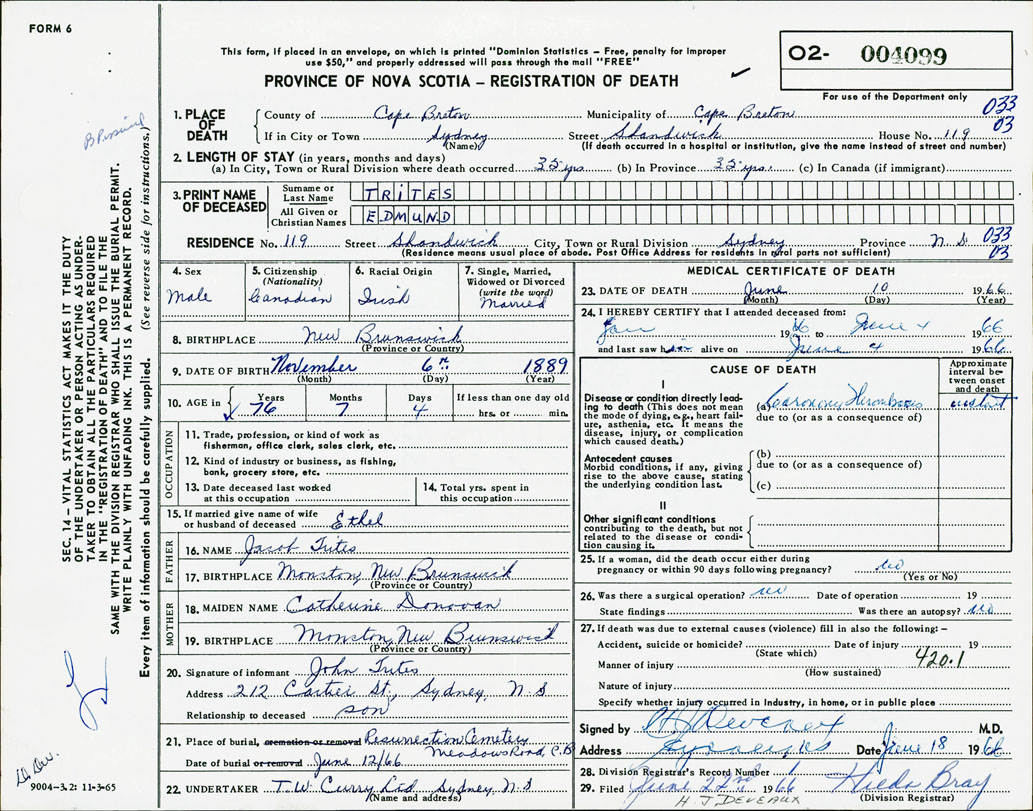 FORM 6
This form, if placed in an envelope, on which is printed "Dominion Statistics – Free, penalty for improper
use $50," and properly addressed will pass through the mail "FREE"
PROVINCE OF NOVA SCOTIA – REGISTRATION OF DEATH
O2- 004099
For use of the Department only
033
03
1. PLACE OF DEATH
County of Cape Breton Municipality of Cape Breton
If in City or Town Sydney Street Shandwick House No. 119
(Name) (If death occurred in a hospital or institution, give the name instead of street and number)
2. LENGTH OF STAY (in years, months and days)
(a) In City, Town or Rural Division where death occurred 35 yrs (b) In Province 35 yrs. (c) In Canada (if immigrant)
3. PRINT NAME OF DECEASED
Surname or Last Name TRITES
All Given or Christian Names EDMUND
RESIDENCE No. 119 Street Shandwick City, Town or Rural Division Sydney Province N.S
(Residence means usual place of abode. Post Office Address for residents in rural parts not sufficient)
033
03
4. Sex
Male
5. Citizenship
(Nationality)
Canadian
6. Racial Origin
Irish
7. Single, Married,
Widowed or Divorced
(write the word)
Married
8. BIRTHPLACE New Brunswick
(Province or Country)
9. DATE OF BIRTH November 6th 1889
(Month) (Day) (Year)
10. AGE in
Years Months Days If less than one day old
76 7 4 hrs. or min.
OCCUPATION
11. Trade, profession, or kind of work as
fisherman, office clerk, sales clerk, etc.
12. Kind of industry or business, as fishing,
bank, grocery store, etc.
13. Date deceased last worked
at this occupation
14. Total yrs. spent in
this occupation
15. If married give name of wife
or husband of deceased Ethel
FATHER
16. NAME Jacob Trites
17. BIRTHPLACE Monston, New Brunswick
(Province or Country)
MOTHER
18. MAIDEN NAME Catherine Donovan
19. BIRTHPLACE Monston, New Brunswick
(Province or Country)
20. Signature of informant John Trites
Address 212 Cartier St., Sydney, N.S
Relationship to deceased son
21. Place of burial, cremation or removal Resurrection Cemetery
Meadows Road, C.B
Date of burial or removal June 12/66
22. UNDERTAKER T.W. Curry Ltd, Sydney, N.S
(Name and address)
MEDICAL CERTIFICATE OF DEATH
23. DATE OF DEATH June 10 1966
(Month) (Day) (Year)
24. I HEREBY CERTIFY that I attended deceased from:
Jan 1966 to June 4 1966
and last saw him alive on June 4 1966
CAUSE OF DEATH
Approximate
interval be-
tween onset
and death
I
Disease or condition directly lead-
ing to death (This does not mean
the mode of dying, e.g., heart fail-
ure, asthenia, etc. It means the
disease, injury, or complication
which caused death.)
(a) Coronary Thrombosis
due to (or as a consequence of)
Antecedent causes
Morbid conditions, if any, giving
rise to the above cause, stating
the underlying condition last.
(b)
due to (or as a consequence of)
(c)
II
Other significant conditions
contributing to the death, but not
related to the disease or condi-
tion causing it.
25. If a woman, did the death occur either during
pregnancy or within 90 days following pregnancy? no
(Yes or No)
26. Was there a surgical operation? no Date of operation 19
State findings Was there an autopsy? no
27. If death was due to external causes (violence) fill in also the following: –
Accident, suicide or homicide? Date of injury 19
(State which)
420.1
Manner of injury
(How sustained)
Nature of injury
Specify whether injury occurred in industry, in home, or in public place
Signed by M.D.
Address Date June 18 1966
28. Division Registrar's Record Number 1
29. Filed June 22nd 1966 Hilda Bray
H. J. DEVEAUX (Division Registrar)
SEC. 14 – VITAL STATISTICS ACT MAKES IT THE DUTY
OF THE UNDERTAKER OR PERSON ACTING AS UNDER-
TAKER TO OBTAIN ALL THE PARTICULARS REQUIRED
IN THE "REGISTRATION OF DEATH" AND TO FILE THE
SAME WITH THE DIVISION REGISTRAR WHO SHALL ISSUE THE BURIAL PERMIT.
WRITE PLAINLY WITH UNFADING INK. THIS IS A PERMANENT RECORD.
Every item of information should be carefully supplied. (See reverse side for instructions.)
9004-3.2: 11-3-65